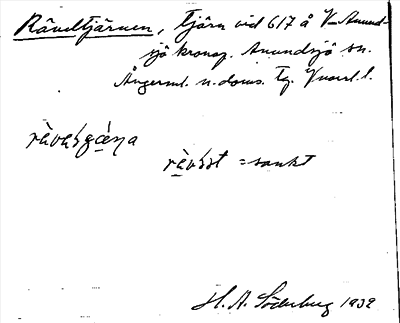 Räveltjärnen, tjärn vid 617 å V-Anund-
sjö kronop. Anundsjö sn.
Ångerml. n. doms.
rä̀vesgæ̀ṇa
rä̀vsst = sankt
H. A. Söderberg 1932